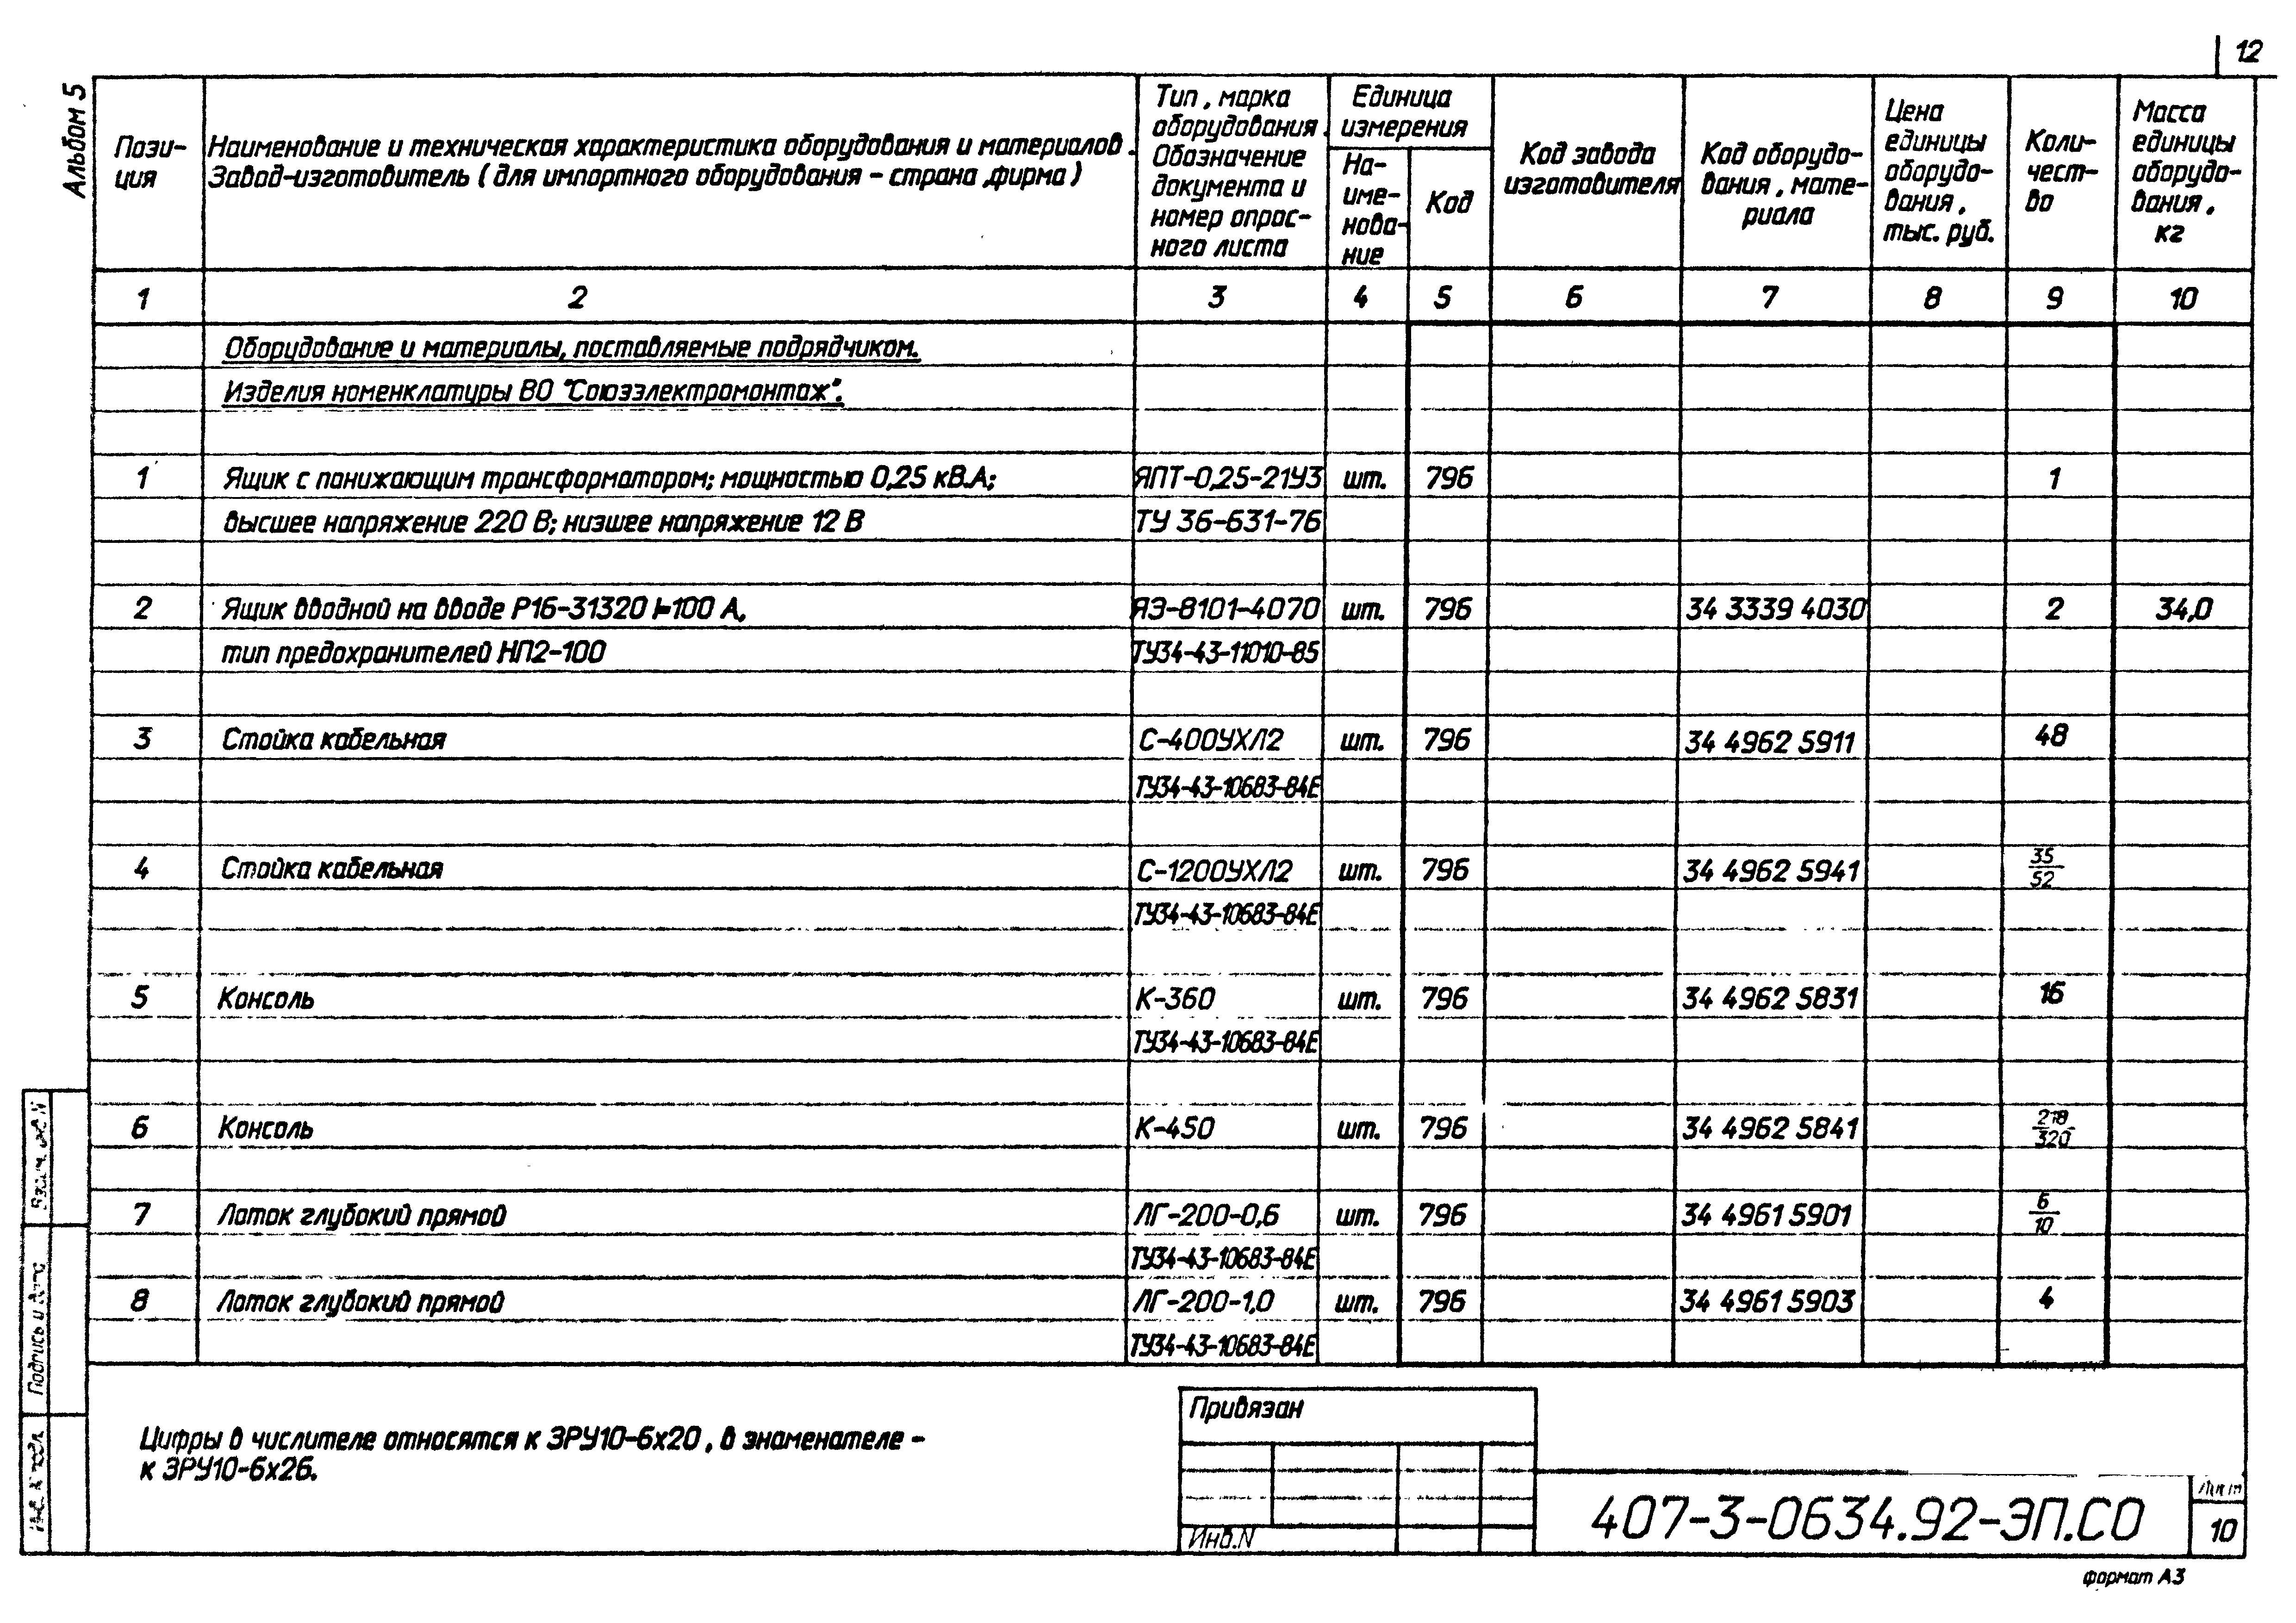 12
Альбом 5
Пози-
ция
Наименование и техническая характеристика оборудования и материалов.
Завод-изготовитель (для импортного оборудования - страна, фирма)
Тип, марка
оборудования.
Обозначение
документа и
номер опрос-
ного листа
Единица
измерения
На-
име-
нова-
ние
Код
Код завода
изготовителя
Код оборудо-
вания, мате-
риала
Цена
единицы
оборудо-
вания,
тыс. руб.
Коли-
чест-
во
Масса
единицы
оборудо-
вания,
кг
1 2 3 4 5 6 7 8 9 10
Оборудование и материалы, поставляемые подрядчиком.
Изделия номенклатуры ВО "Союзэлектромонтаж".
1 Ящик с понижающим трансформатором; мощностью 0,25 кВ.А; ЯПТ-0,25-21У3 шт. 796 1
высшее напряжение 220 В; низшее напряжение 12 В ТУ 36-631-76
2 Ящик вводной на вводе Р16-31320 I=100 А, ЯЭ-8101-4070 шт. 796 34 3339 4030 2 34,0
тип предохранителей НП2-100 ТУ34-43-11010-85
3 Стойка кабельная С-400УХЛ2 шт. 796 34 4962 5911 48
ТУ34-43-10683-84Е
4 Стойка кабельная С-1200УХЛ2 шт. 796 34 4962 5941 35/52
ТУ34-43-10683-84Е
5 Консоль К-360 шт. 796 34 4962 5831 16
ТУ34-43-10683-84Е
6 Консоль К-450 шт. 796 34 4962 5841 218/320
7 Лоток глубокий прямой ЛГ-200-0,6 шт. 796 34 4961 5901 6/10
ТУ34-43-10683-84Е
8 Лоток глубокий прямой ЛГ-200-1,0 шт. 796 34 4961 5903 4
ТУ34-43-10683-84Е
Взам. инв. N
Подпись и дата
Инв. N подл.
Цифры в числителе относятся к ЗРУ10-6х20, в знаменателе -
к ЗРУ10-6х26.
Привязан
Инв.N
407-3-0634.92-ЭП.СО
Лист
10
формат А3